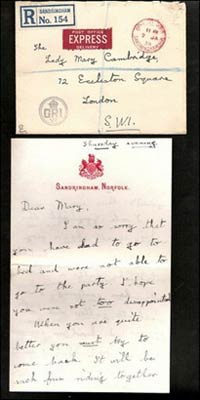 R SANDRINGHAM
No. 154
POST OFFICE
EXPRESS
DELIVERY
The
Lady Mary Cambridge,
72 Eccleston Square
London
S.W.1.
GRI
Thursday evening
SANDRINGHAM, NORFOLK.
Dear Mary,
I am so sorry that
you have had to go to
bed and were not able to
go to the party. I hope
you were not too disappointed
When you are quite
better you must try to
come back. It will be
such fun riding together